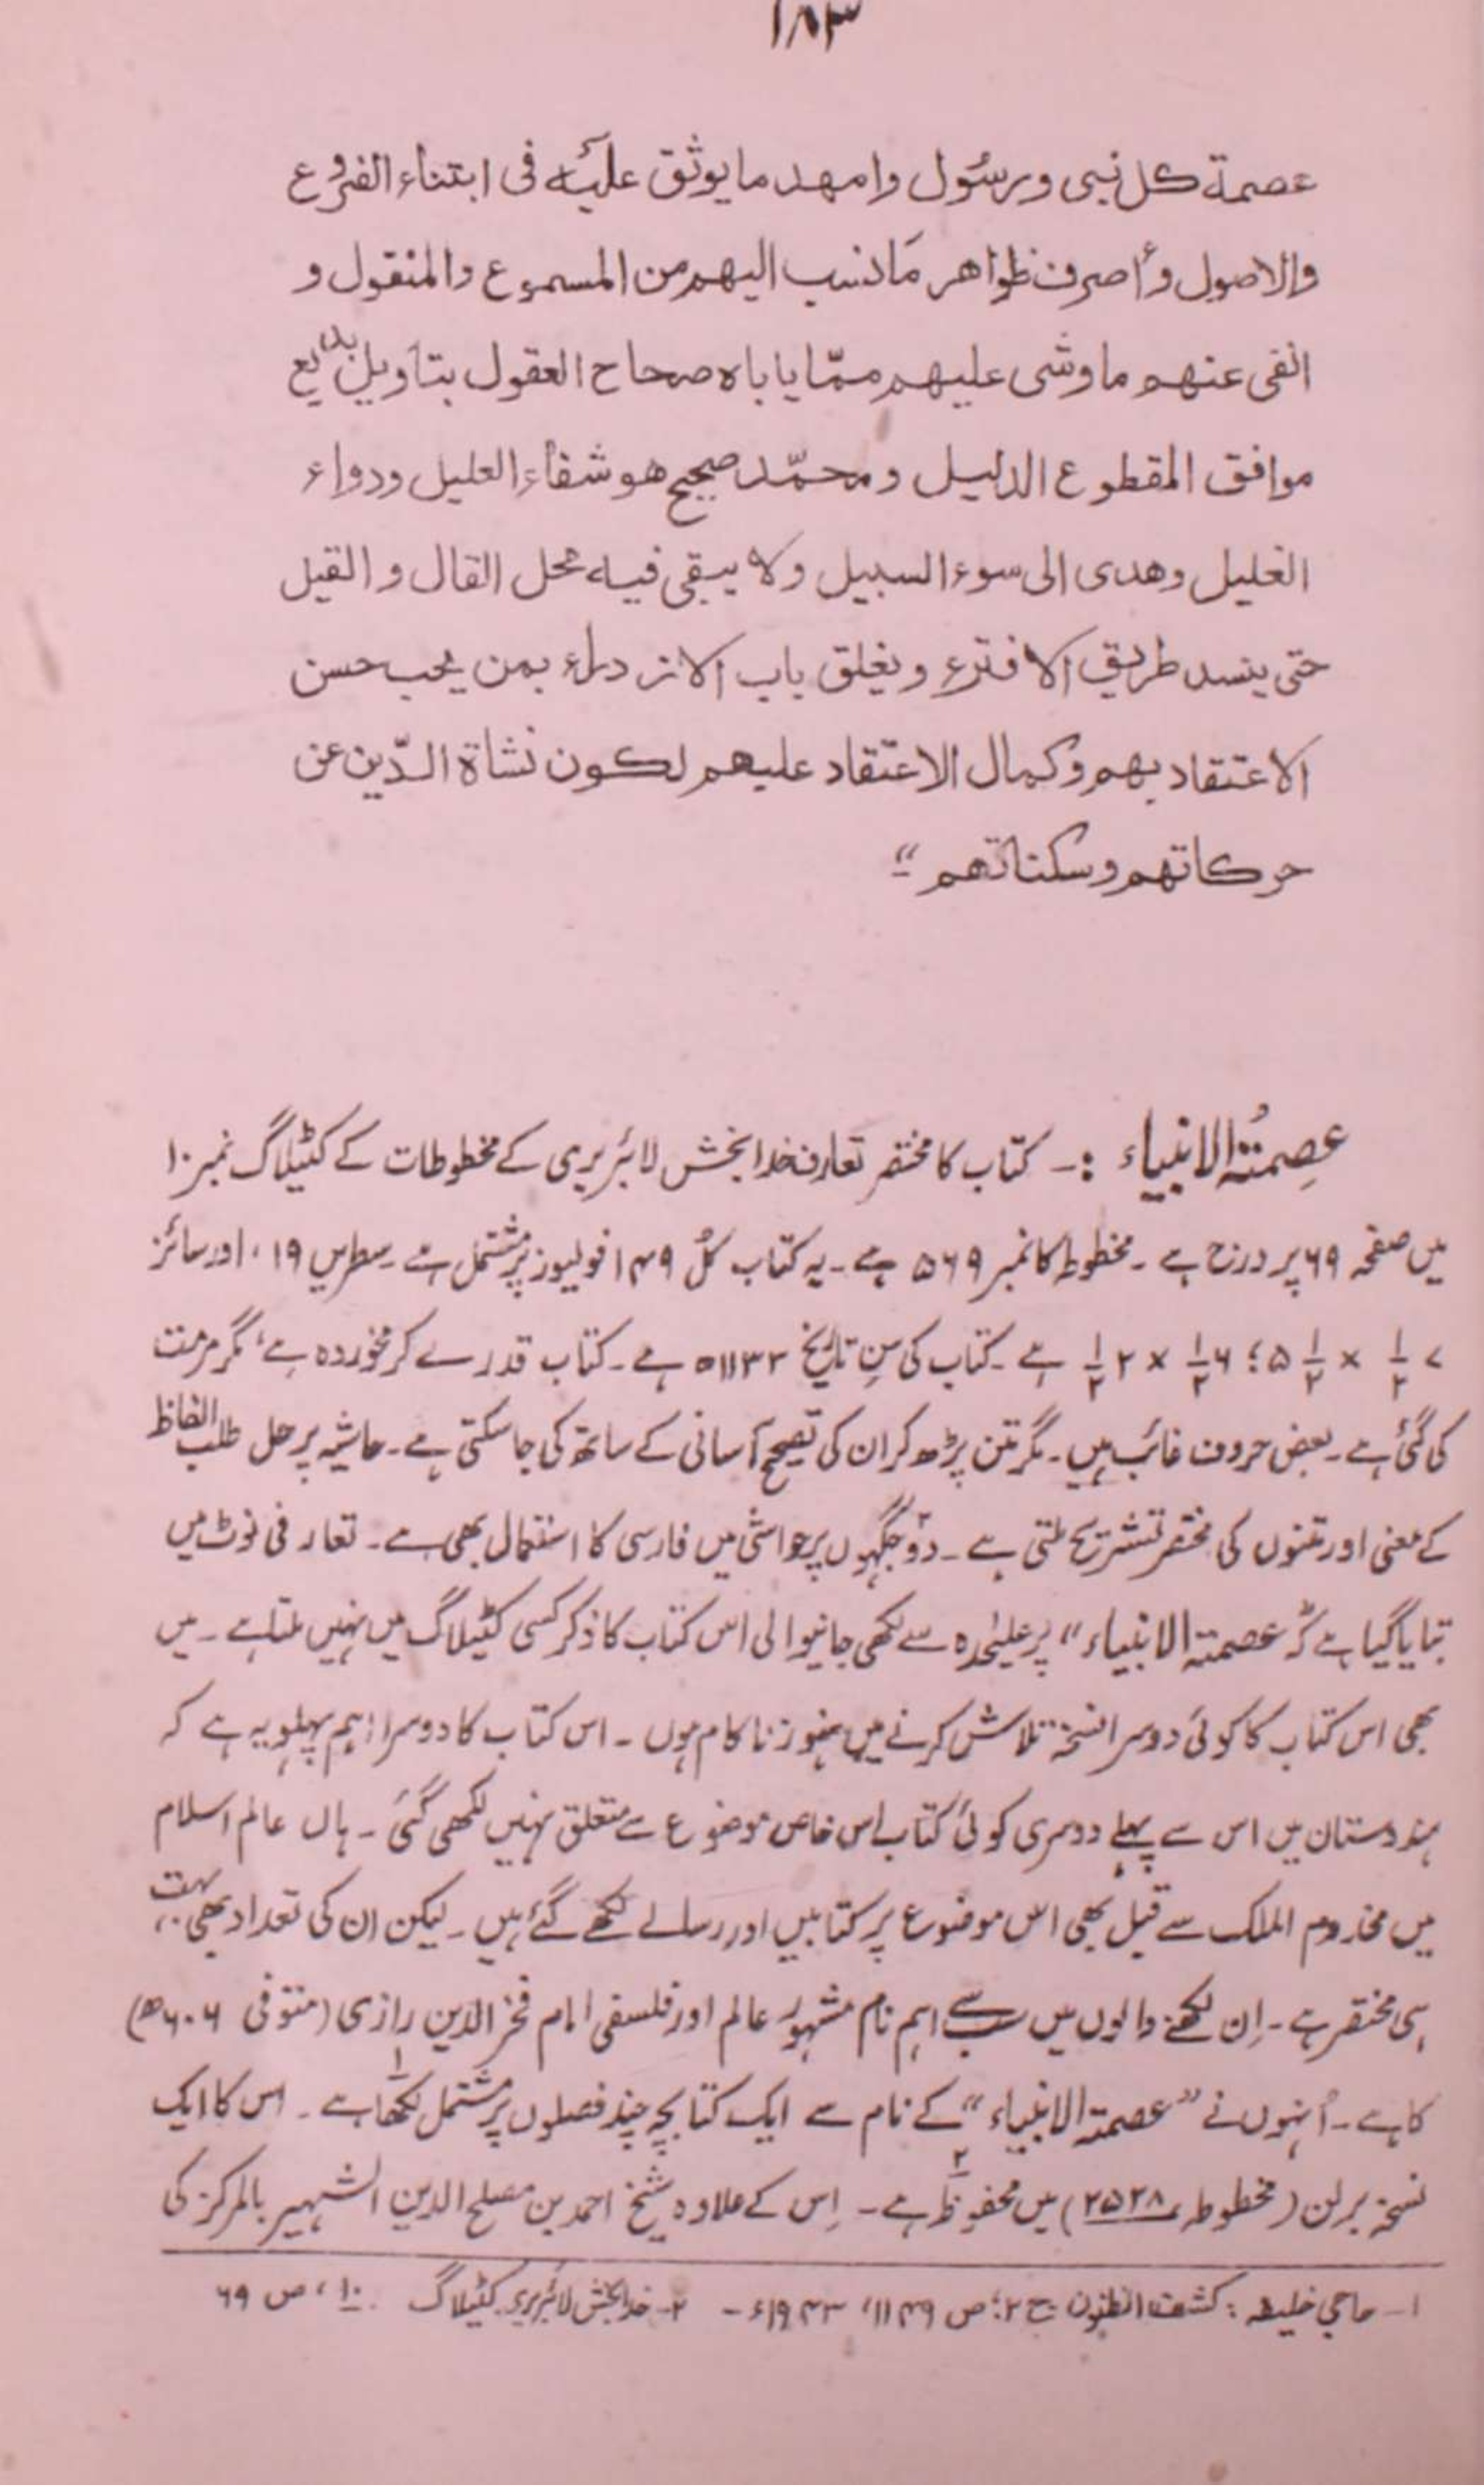 ۱۸۳
عصمة كل نبى ورسُول وامهد ما يوثق عليه فى ابتناء الفروع
والاصول وأصرف ظواهر مَا نسب اليهم من المسموع والمنقول و
انفى عنهم ما وشى عليهم ممّا ياباه صحاح العقول بتاويل بدايع
موافق المقطوع الدليل ومحمّد صحيح هو شفاء العليل ودواء
الغليل وهدى الى سوء السبيل ولا يبقى فيه محل القال و القيل
حتى ينسد طريق الافترء ويغلق باب الازدراء بمن يحب حسن
الاعتقاد بهم وكمال الاعتقاد عليهم لكون نشاة الدّين عن
حركاتهم وسكناتهم"
عِصمتُہ الانبیاء :۔ کتاب کا مختصر تعارف خدا بخش لائبریری کے مخطوطات کے کٹیلاگ نمبر ۱۰
میں صفحہ ۶۹ پر درج ہے ۔ مخطوطہ کا نمبر ۵۶۹ ہے ۔ یہ کتاب کُل ۱۴۹ فولیوز پر مشتمل ہے ۔ سطریں ۱۹، اور سائز
۷ ۱/۲ × ۵ ۱/۲ ؛ ۶ ۱/۲ × ۲ ۱/۲ ہے ۔ کتاب کی سنِ تاریخ ۱۱۳۲ھ ہے ۔ کتاب قدرے کرم خوردہ ہے، مگر مرمت
کی گئی ہے ۔ بعض حروف غائب ہیں ۔ مگر متن پڑھ کر ان کی تصحیح آسانی کے ساتھ کی جا سکتی ہے ۔ حاشیہ پر حل طلب الفاظ
کے معنی اور متنوں کی مختصر تشریح ملتی ہے ۔ دوؔ جگہوں پر حواشی میں فارسی کا استعمال بھی ہے ۔ تعارفی نوٹ میں
بتایا گیا ہے کہ "عصمتہ الانبیاء" پر علیٰحدہ سے لکھی جانیوالی اس کتاب کا ذکر کسی کٹیلاگ میں نہیں ملتا ہے ۔ میں
بھی اس کتاب کا کوئی دوسرا نسخہ تلاش کرنے میں ہنوز ناکام ہوں ۔ اس کتاب کا دوسرا اہم پہلو یہ ہے کہ
ہندوستان میں اس سے پہلے دوسری کوئی کتاب اس خاص موضوع سے متعلق نہیں لکھی گئی ۔ ہاں عالم اسلام
میں مخدوم الملک سے قبل بھی اس موضوع پر کتابیں اور رسالے لکھے گئے ہیں ۔ لیکن ان کی تعداد بھی بہت
ہی مختصر ہے ۔ اِن لکھنے والوں میں سب سے اہم نام مشہور عالم اور فلسفی امام فخر الدین رازی (متوفی ۶۰۶ھ)
کا ہے ۔ اُنہوں نے "عصمتہ الانبیاء" کے نام سے ایک کتابچہ چند فصلوں پر مشتمل لکھا۱ ہے ۔ اس کا ایک
نسخہ برلن (مخطوطہ ۲۵۲۸) میں محفوظ۲ ہے ۔ اِس کے علاوہ شیخ احمد بن مصلح الدین الشہیر بالمرکز کی
۱۔ حاجی خلیفہ : کشف الظنون ج ۲؛ ص ۱۱۴۹، ۱۹۴۳ء ۔ ۲۔ خدا بخش لائبریری کٹیلاگ ۱۰، ص ۶۹